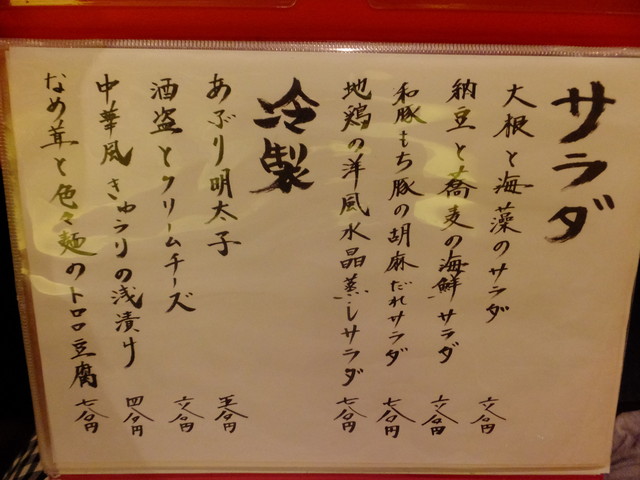 サラダ
大根と海藻のサラダ 六百円
納豆と蕎麦の海鮮サラダ 六百円
和豚もち豚の胡麻だれサラダ 七百円
地鶏の洋風水晶蒸しサラダ 七百円
冷製
あぶり明太子 五百円
酒盗とクリームチーズ 六百円
中華風きゅうりの浅漬け 四百円
なめ茸と色々麺のトロロ豆腐 七百円